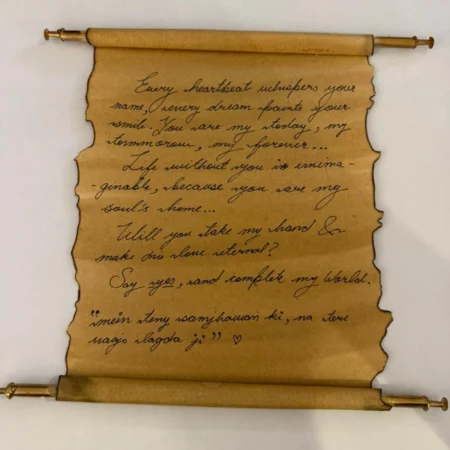 Every heartbeat whispers your
name, every dream paints your
smile. You are my today, my
tommorow, my forever...
Life without you is unima-
-ginable, because you are my
soul's home...
Will you take my hand &
make our love eternal?
Say yes, and complete my World.
"mein tenu samjhawan ki, na tere
vagjo lagda ji" ♡